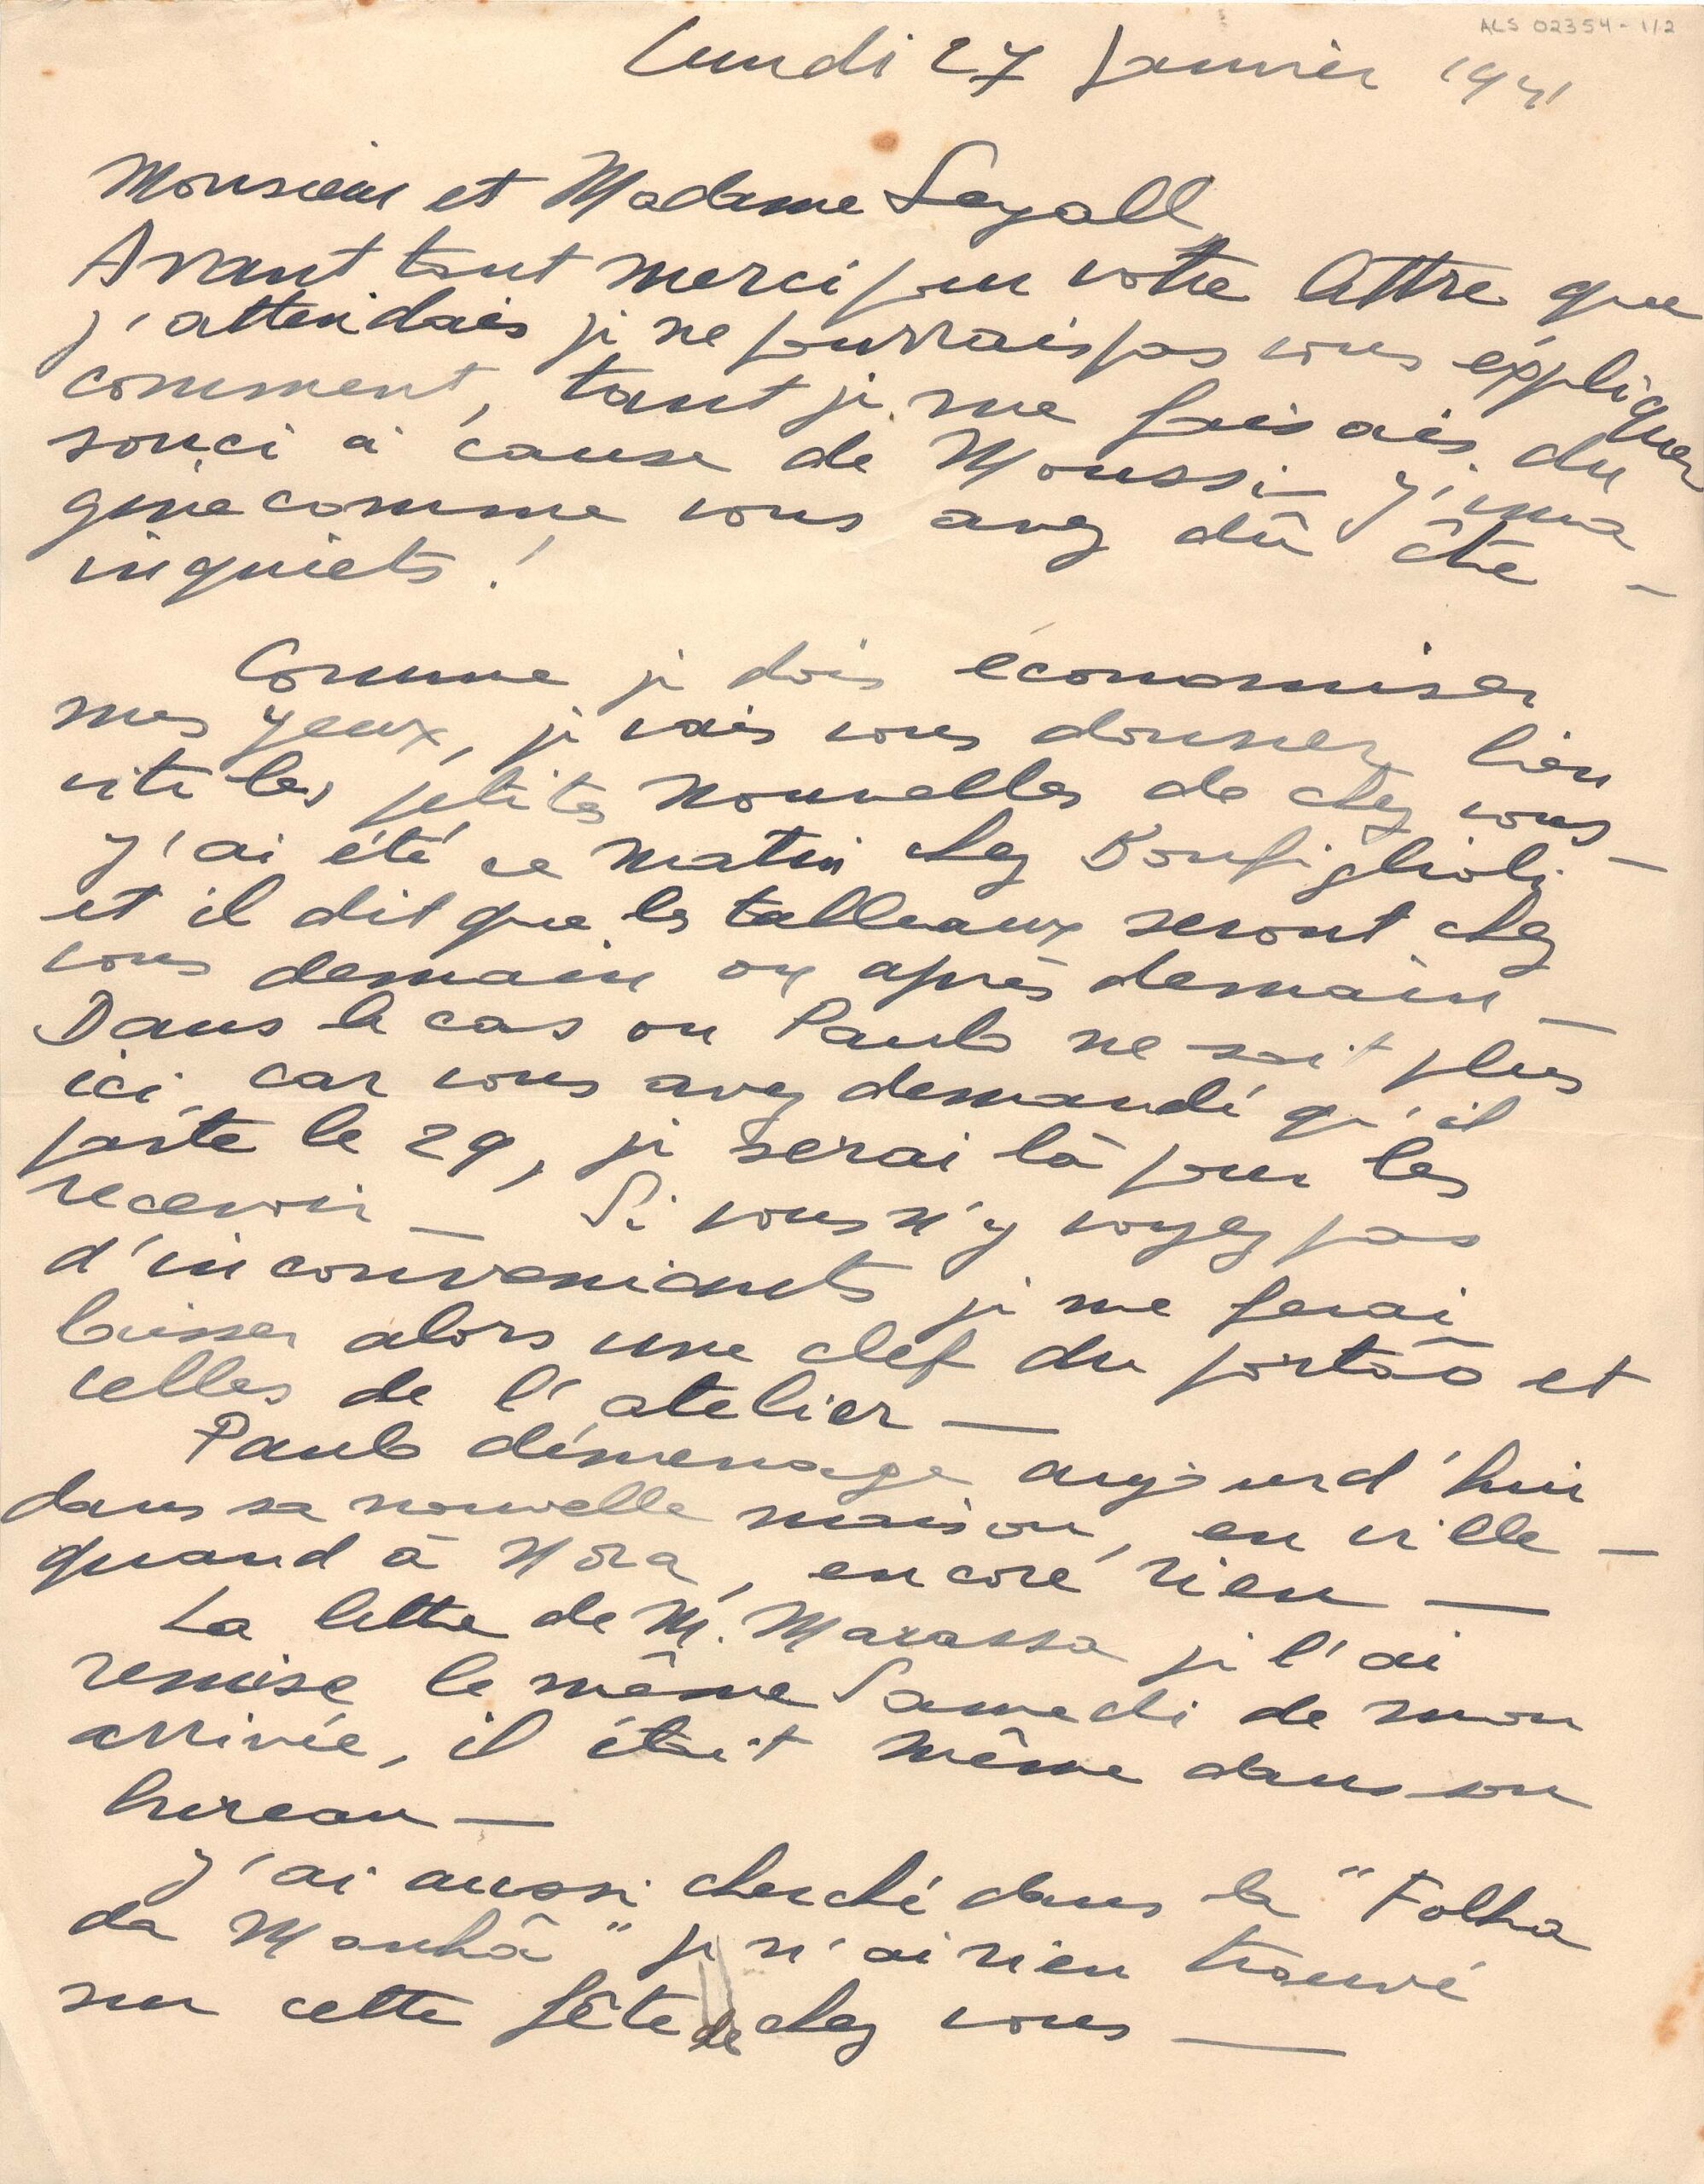 ALS 02354-1/2
Lundi 27 Janvier 1941
Monsieur et Madame Segall
Avant tout merci pour votre lettre que
j'attendais je ne pourrais pas vous éxpliquer
comment, tant je me faisais du
souci à cause de Moussi – J'ima
gine comme vous avez dû être –
inquiets !
Comme je dois économiser
mes yeux, je vais vous donner bien
vite les petites nouvelles de chez vous –
J'ai été ce matin chez Bonfiglioli
et il dit que les tableaux seront chez
vous demain ou après demain –
Dans le cas ou Paulo ne soit plus
ici, car vous avez demandé qu'il
parte le 29, je serai là pour les
recevoir – Si vous n'y voyez pas
d'inconvenients je me ferai
laisser alors une clef du portão et
celles de l'atelier –
Paulo démenage aujourd'hui
dans sa nouvelle maison, en ville –
quand à Nora, encore rien –
La lettre de M. Marassa je l'ai
remise le même Samedi de mon
arrivée, il était même dans son
bureau –
J'ai aussi cherché dans la "Folha
da Manhã" je n'ai rien trouvé
sur cette fête de chez vous –